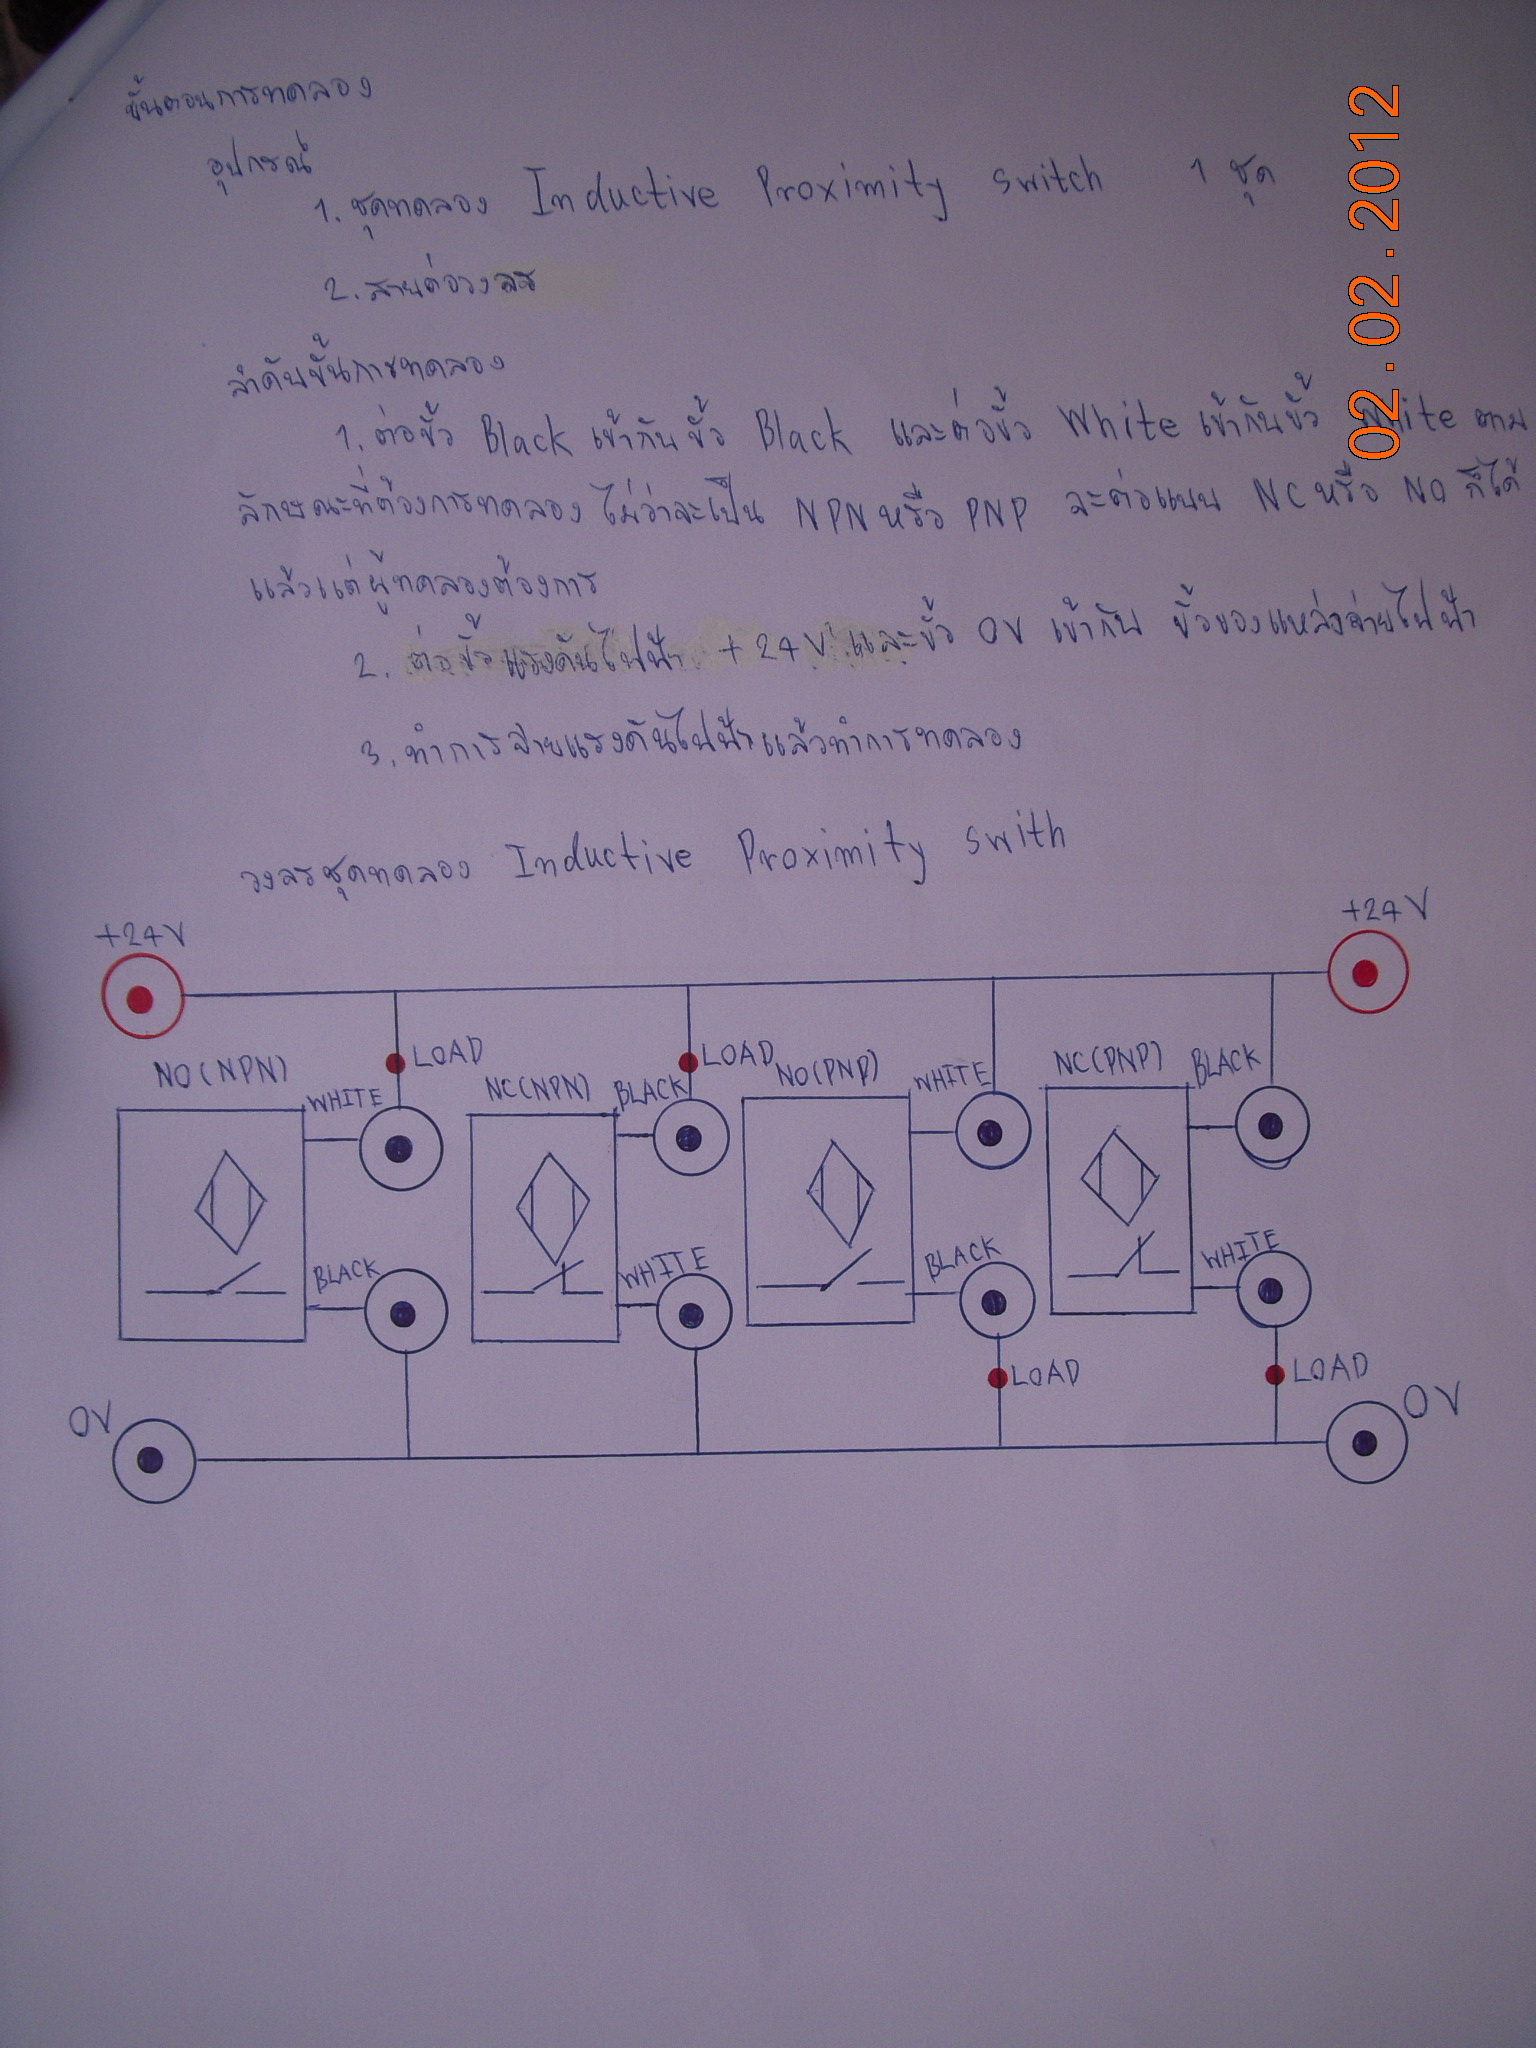 ขั้นตอนการทดลอง
อุปกรณ์
1. ชุดทดลอง Inductive Proximity switch 1 ชุด
2. สายต่อวงจร
ลำดับขั้นการทดลอง
1. ต่อขั้ว Black เข้ากับขั้ว Black และต่อขั้ว White เข้ากับขั้ว White ตาม
ลักษณะที่ต้องการทดลอง ไม่ว่าจะเป็น NPN หรือ PNP จะต่อแบบ NC หรือ NO ก็ได้
แล้วแต่ผู้ทดลองต้องการ
2. ต่อขั้วแรงดันไฟฟ้า +24V และขั้ว 0V เข้ากับ ขั้วของแหล่งจ่ายไฟฟ้า
3. ทำการจ่ายแรงดันไฟฟ้าแล้วทำการทดลอง
วงจรชุดทดลอง Inductive Proximity swith
+24V +24V
NO(NPN) WHITE LOAD NC(NPN) BLACK LOAD NO(PNP) WHITE NC(PNP) BLACK
BLACK WHITE BLACK WHITE
LOAD LOAD
0V 0V
02.02.2012